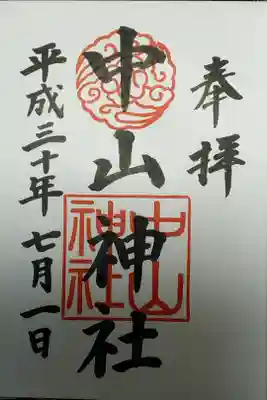 奉拝
中山神社
中山神社
平成三十年七月一日